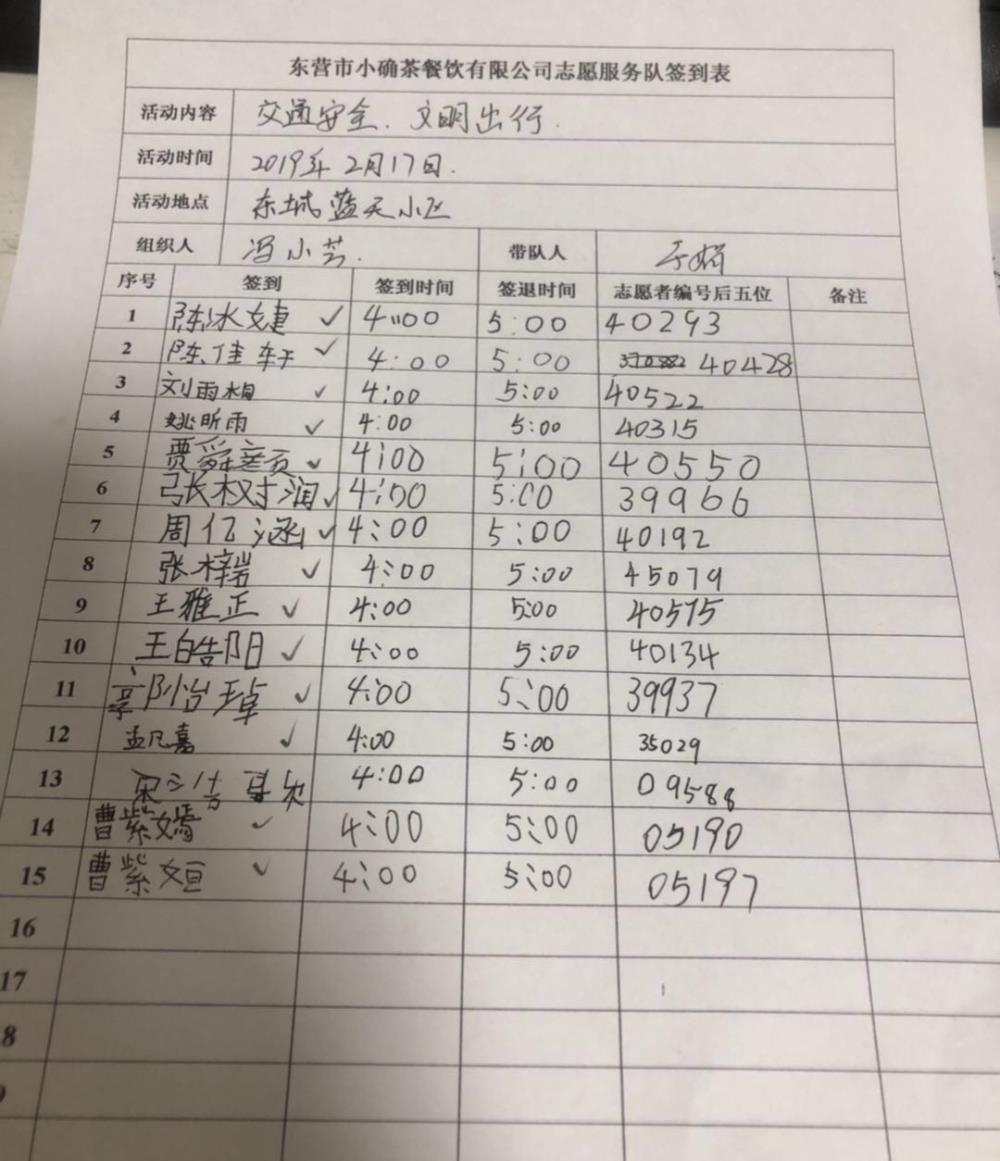 东营市小确茶餐饮有限公司志愿服务队签到表
活动内容 交通安全、文明出行.
活动时间 2019年2月17日.
活动地点 东城蓝天小区
组织人 冯小芸. 带队人 于娟
序号 签到 签到时间 签退时间 志愿者编号后五位 备注
1 陈冰婕 ✓ 4:00 5:00 40293
2 陈佳轩 ✓ 4:00 5:00 40428
3 刘雨桐 ✓ 4:00 5:00 40522
4 姚昕雨 ✓ 4:00 5:00 40315
5 贾舜 ✓ 4:00 5:00 40550
6 张权润 ✓ 4:00 5:00 39966
7 周亿涵 ✓ 4:00 5:00 40192
8 张梓岩 ✓ 4:00 5:00 45079
9 王雅正 ✓ 4:00 5:00 40575
10 王皓阳 ✓ 4:00 5:00 40134
11 郭怡琸 ✓ 4:00 5:00 39937
12 孟凡嘉 ✓ 4:00 5:00 35029
13 4:00 5:00 09588
14 曹紫嫣 ✓ 4:00 5:00 05190
15 曹紫姮 ✓ 4:00 5:00 05197
16
17
8